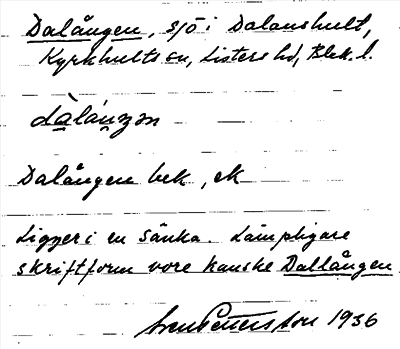 Dalången, sjö i Dalanshult,
Kyrkhults sn, Listers hd, Blek. l.
dàláŋən
Dalången bek, ek
Ligger i en sänka. Lämpligare
skriftform vore kanske Dallången
Sven Petersson 1936